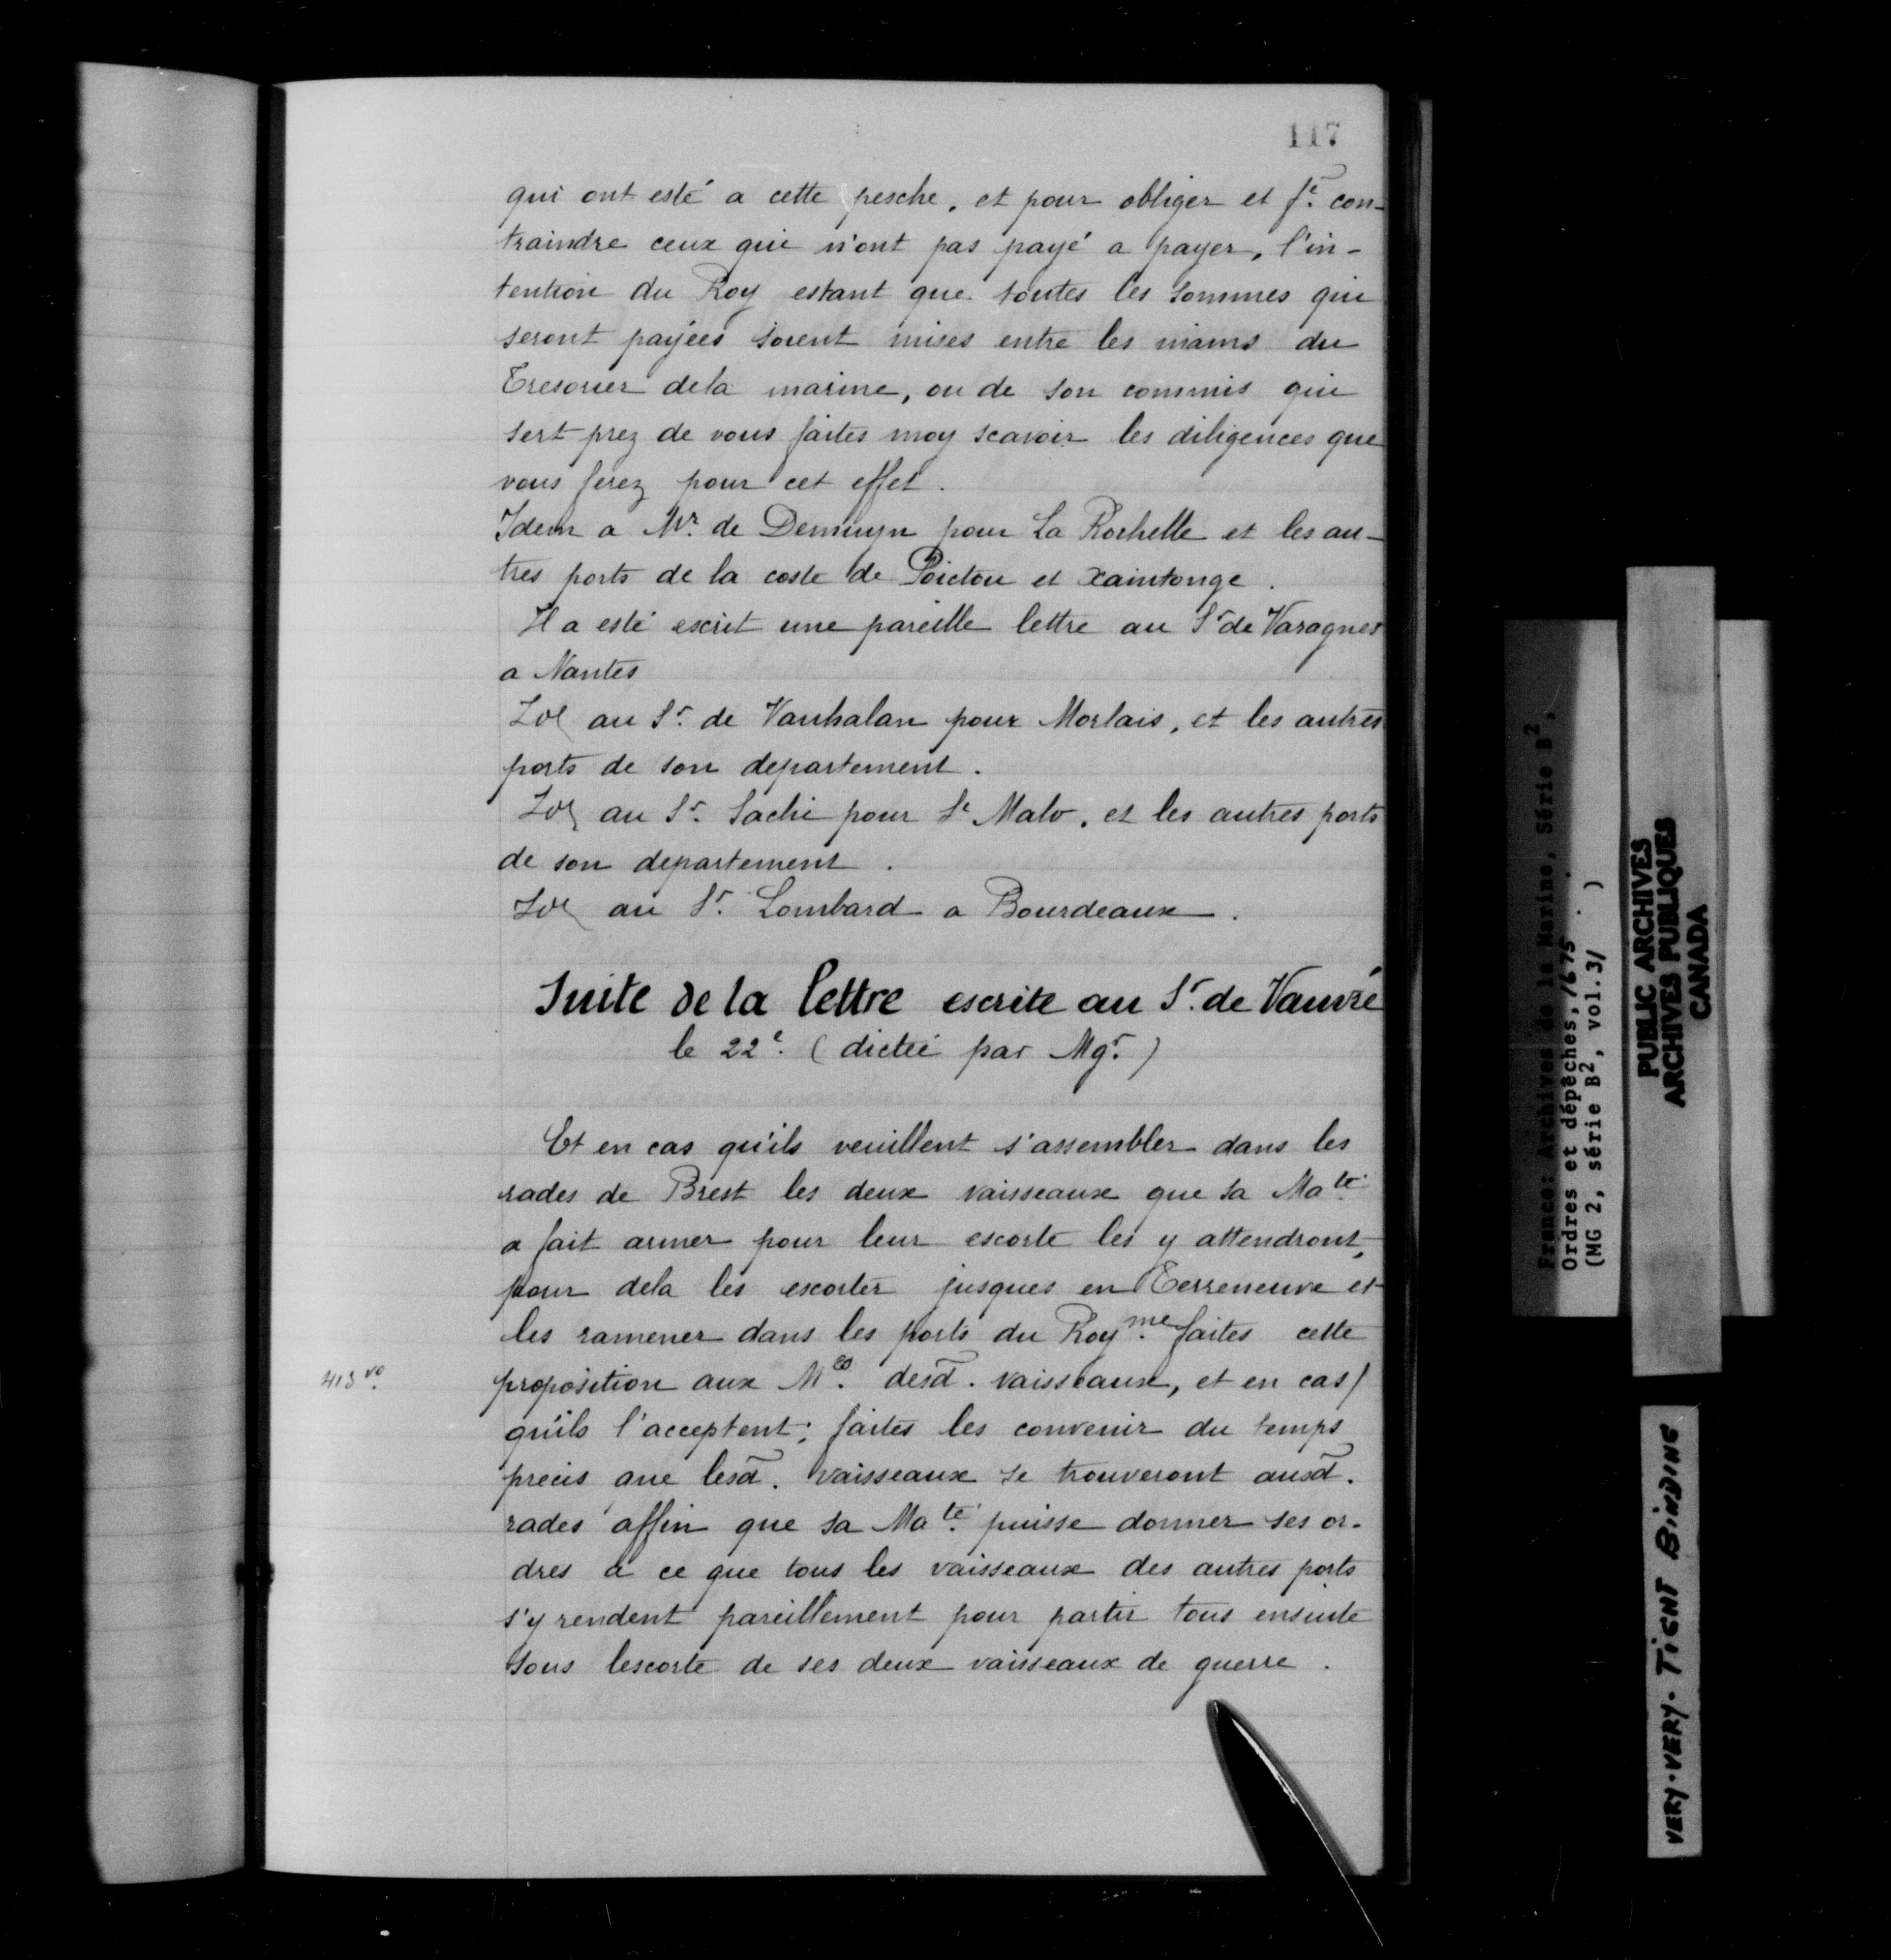 117
qui ont esté a cette pesche, et pour obliger et fe. con-
traindre ceux qui n'ont pas payé a payer, l'in-
tention du Roy estant que toutes les sommes qui
seront payées soient mises entre les mains du
Tresorier dela marine, ou de son commis qui
sert prez de vous faites moy scavoir les diligences que
vous ferez pour cet effet.
Idem a Mr. de Demuyn pour La Rochelle et les au-
tres ports de la coste de Poictou et Xaintonge.
Il a esté escrit une pareille lettre au Sr de Varagnes
a Nantes
au Sr. de Vauhalan pour Morlais, et les autres
ports de son departement.
au Sr. Sachi pour St Malo, et les autres ports
de son departement.
au Sr. Lombard a Bourdeaux.
Suite de la lettre escrite au Sr. de Vauvré
le 22e. (dictée par Mgr.)
Et en cas qu'ils veuillent s'assembler dans les
rades de Brest les deux vaisseaux que sa Maté.
a fait armer pour leur escorte les y attendront,
pour dela les escorter jusques en Terreneuve et
les ramener dans les ports du Royme. faites cette
413 vo.
proposition aux Mes. desd. vaisseaux, et en cas/
qu'ils l'acceptent; faites les convenir du temps
precis que lesd. vaisseaux se trouveront ausd.
rades affin que sa Maté. puisse donner ses or-
dres a ce que tous les vaisseaux des autres ports
s'y rendent pareillement pour partir tous ensuite
sous lescorte de ses deux vaisseaux de guerre.
France: Archives de la Marine, Série B2,
Ordres et dépêches, 1675 . .
(MG 2, série B2, vol.31 )
PUBLIC ARCHIVES
ARCHIVES PUBLIQUES
CANADA
VERY-VERY-TIGHT BINDING